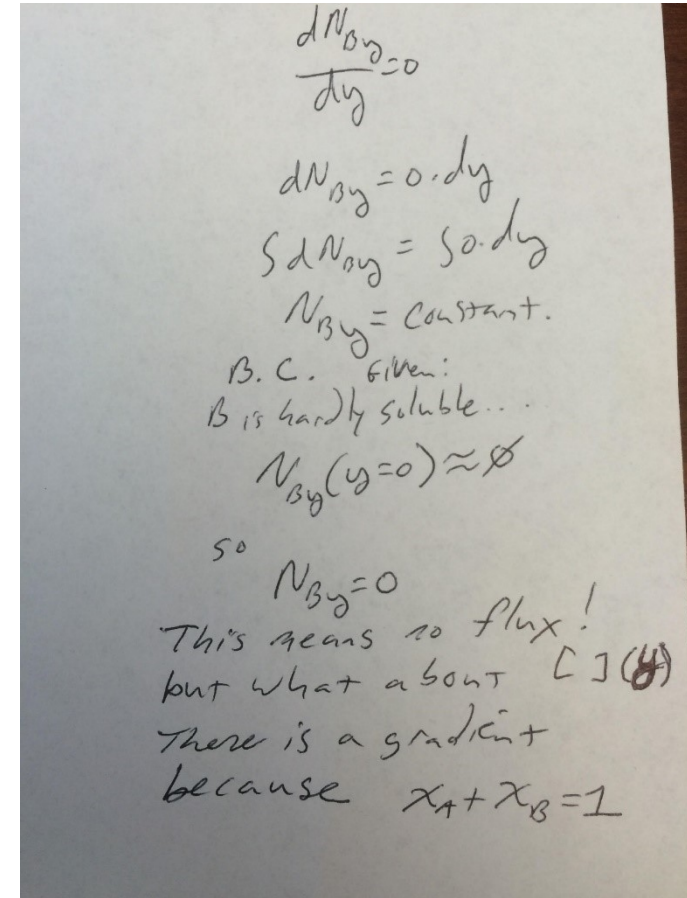 dN_By/dy = 0
dN_By = 0·dy
∫dN_By = ∫0·dy
N_By = Constant.
B.C. Given:
B is hardly soluble....
N_By(y=0) ≈ ∅
so
N_By = 0
This means no flux!
but what about [ ](y)
There is a gradient
because x_A + x_B = 1